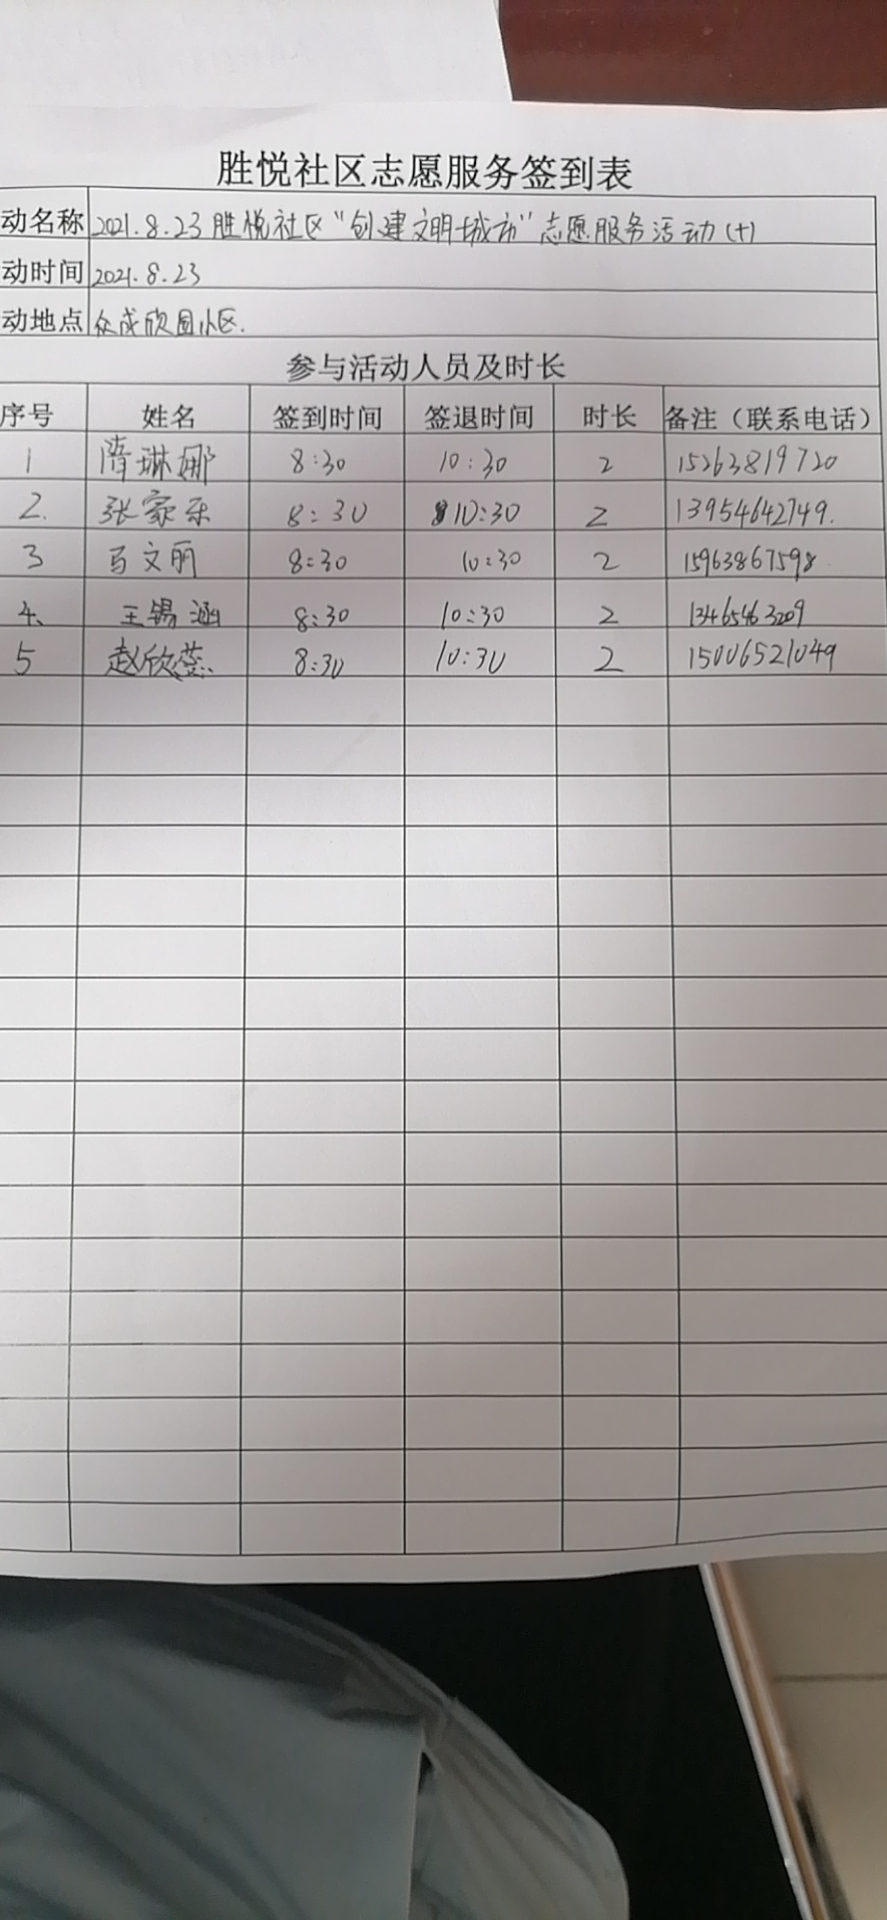 胜悦社区志愿服务签到表
动名称 2021.8.23 胜悦社区“创建文明城市”志愿服务活动(十)
动时间 2021.8.23
动地点 众成欣园小区.
参与活动人员及时长
序号 姓名 签到时间 签退时间 时长 备注（联系电话）
1 隋琳娜 8:30 10:30 2 15263819720
2. 张家乐 8:30 10:30 2 13954642749.
3 马文丽 8:30 10:30 2 15963867598
4、 王锡涵 8:30 10:30 2 13465463209
5 赵欣蕊 8:30 10:30 2 15006521049